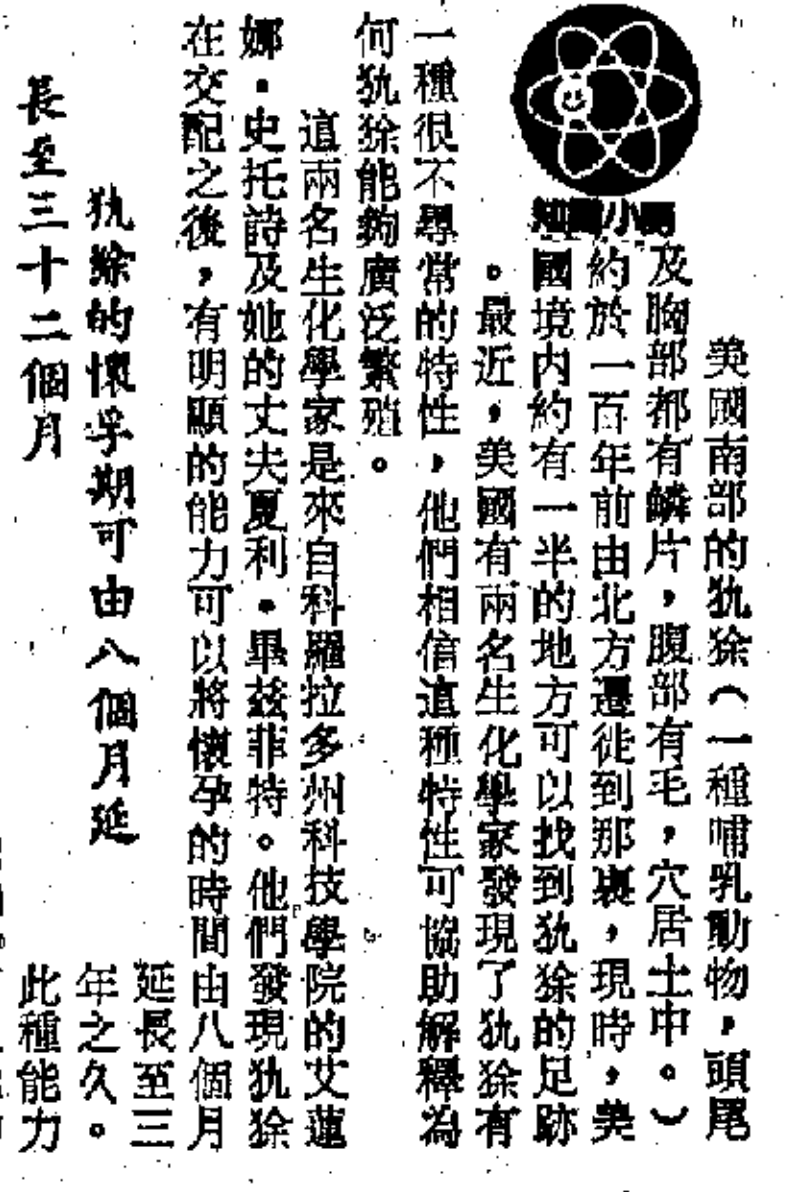 美國南部的犰狳(一種哺乳動物,頭尾
及胸部都有鱗片,腹部有毛,穴居土中。)
約於一百年前由北方遷徙到那裏,現時,美
國境內約有一半的地方可以找到犰狳的足跡
。最近,美國有兩名生化學家發現了犰狳有
一種很不尋常的特性,他們相信這種特性可協助解釋為
何犰狳能夠廣泛繁殖。
這兩名生化學家是來自科羅拉多州科技學院的艾蓮
娜.史托詩及她的丈夫夏利.畢茲菲特。他們發現犰狳
在交配之後,有明顯的能力可以將懷孕的時間由八個月
犰狳的懷孕期可由八個月延
長至三十二個月
延長至三
年之久。
此種能力